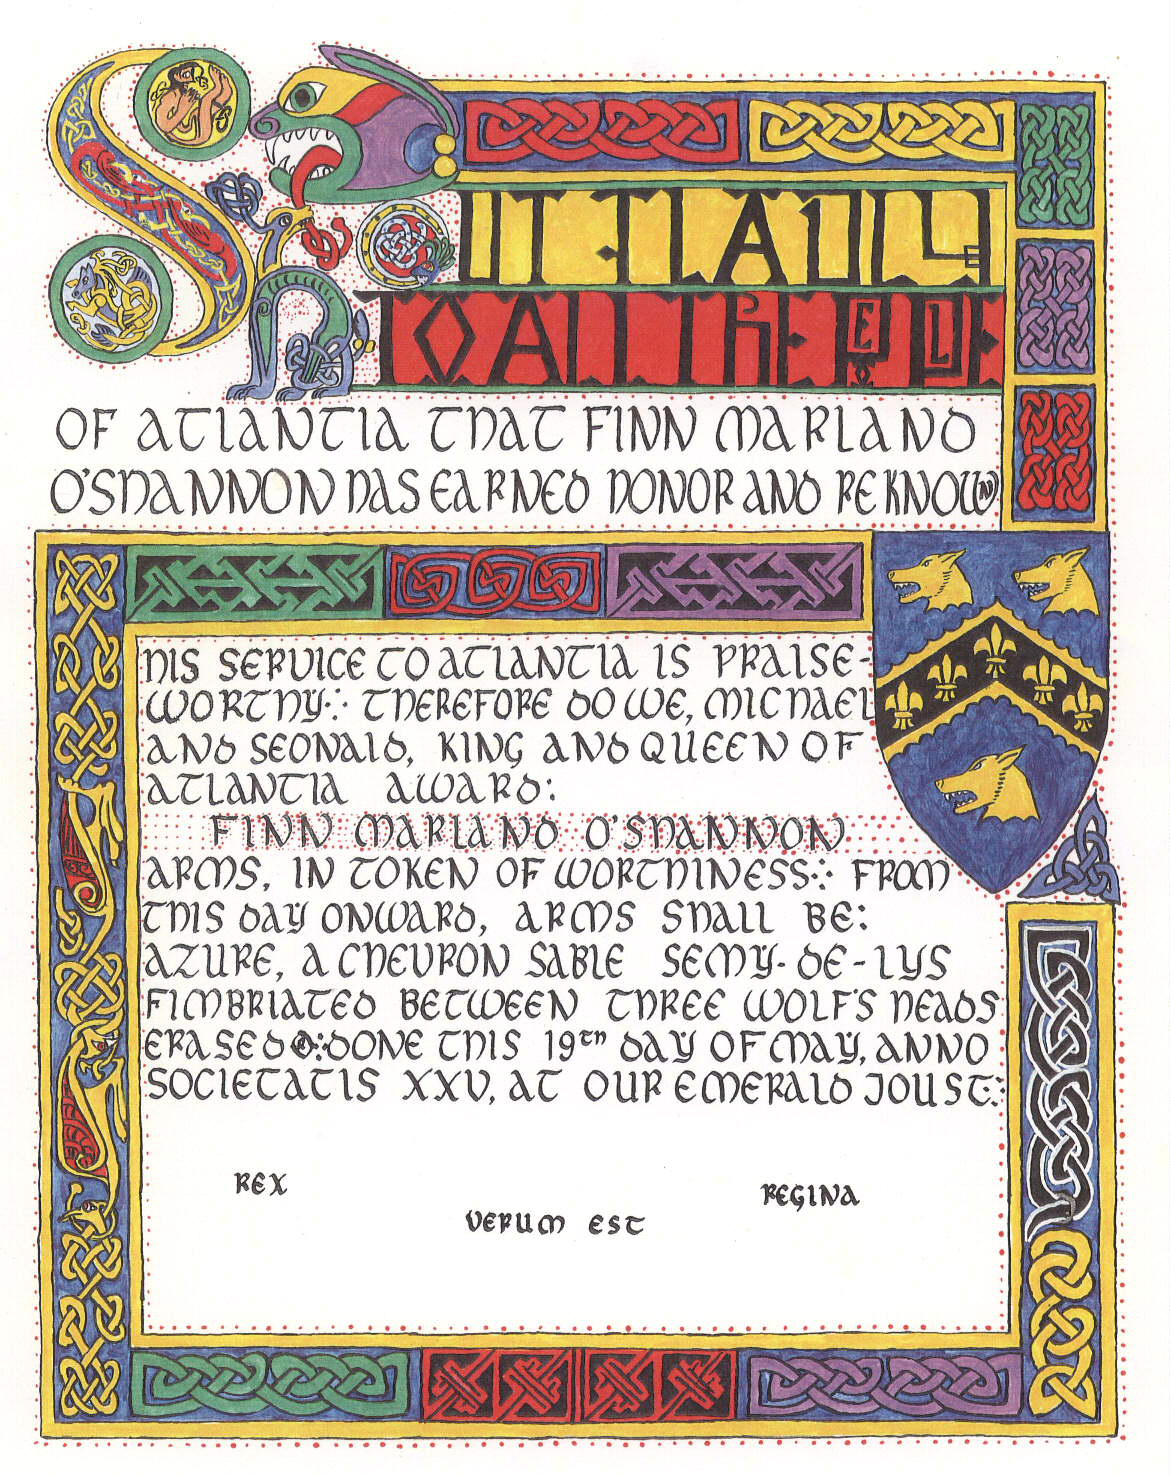 TO ALL THE PEOPLE
OF ATLANTIA THAT FINN MARLAND
O'SHANNON HAS EARNED HONOR AND REKNOWN
HIS SERVICE TO ATLANTIA IS PRAISE-
WORTHY: THEREFORE DO WE, MICHAEL
AND SEONAID, KING AND QUEEN OF
ATLANTIA AWARD:
FINN MARLAND O'SHANNON
ARMS, IN TOKEN OF WORTHINESS: FROM
THIS DAY ONWARD, ARMS SHALL BE:
AZURE, A CHEVRON SABLE SEMY-DE-LYS
FIMBRIATED BETWEEN THREE WOLF'S HEADS
ERASED DONE THIS 19TH DAY OF MAY, ANNO
SOCIETATIS XXV, AT OUR EMERALD JOUST:
REX
REGINA
VERUM EST